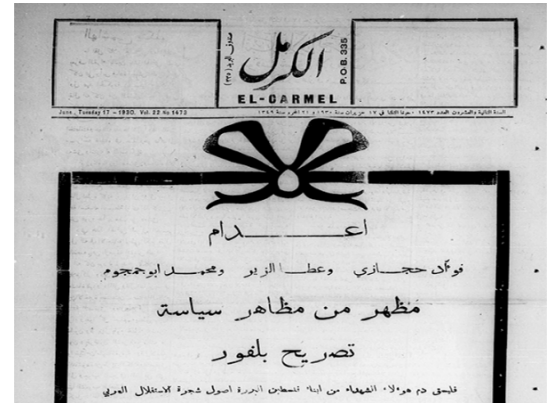 صندوق البريد (٣٣٥)
الكرمل
P.O.B. 335
EL-CARMEL
June, Tuesday 17 - 1930. Vol. 22 No 1473
السنة الثانية والعشرون العدد ١٤٧٣ - حيفا الثلاثا في ١٧ حزيران سنة ١٩٣٠ و ٢١ محرم سنة ١٣٤٩
اعــــدام
فوءاد حجــازي وعطــا الزير ومحمــد ابو جمجوم
مظهر من مظاهر سياسة
تصريح بلفور
فليسق دم هوءلاء الشهداء من ابناء فلسطين البررة اصول شجرة الاستقلال العربي